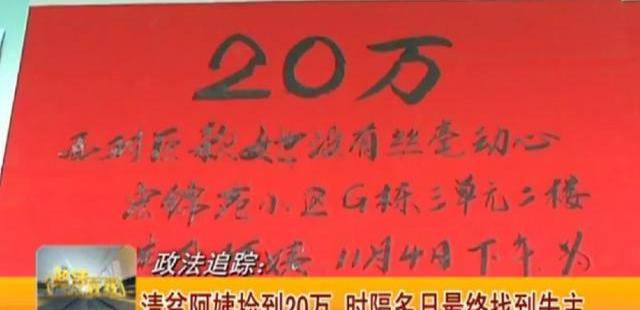 20万
面对巨款她没有丝毫动心
锦苑小区G栋三单元二楼
11月4日下午为
政法追踪:
清贫阿姨捡到20万 时隔多日最终找到失主